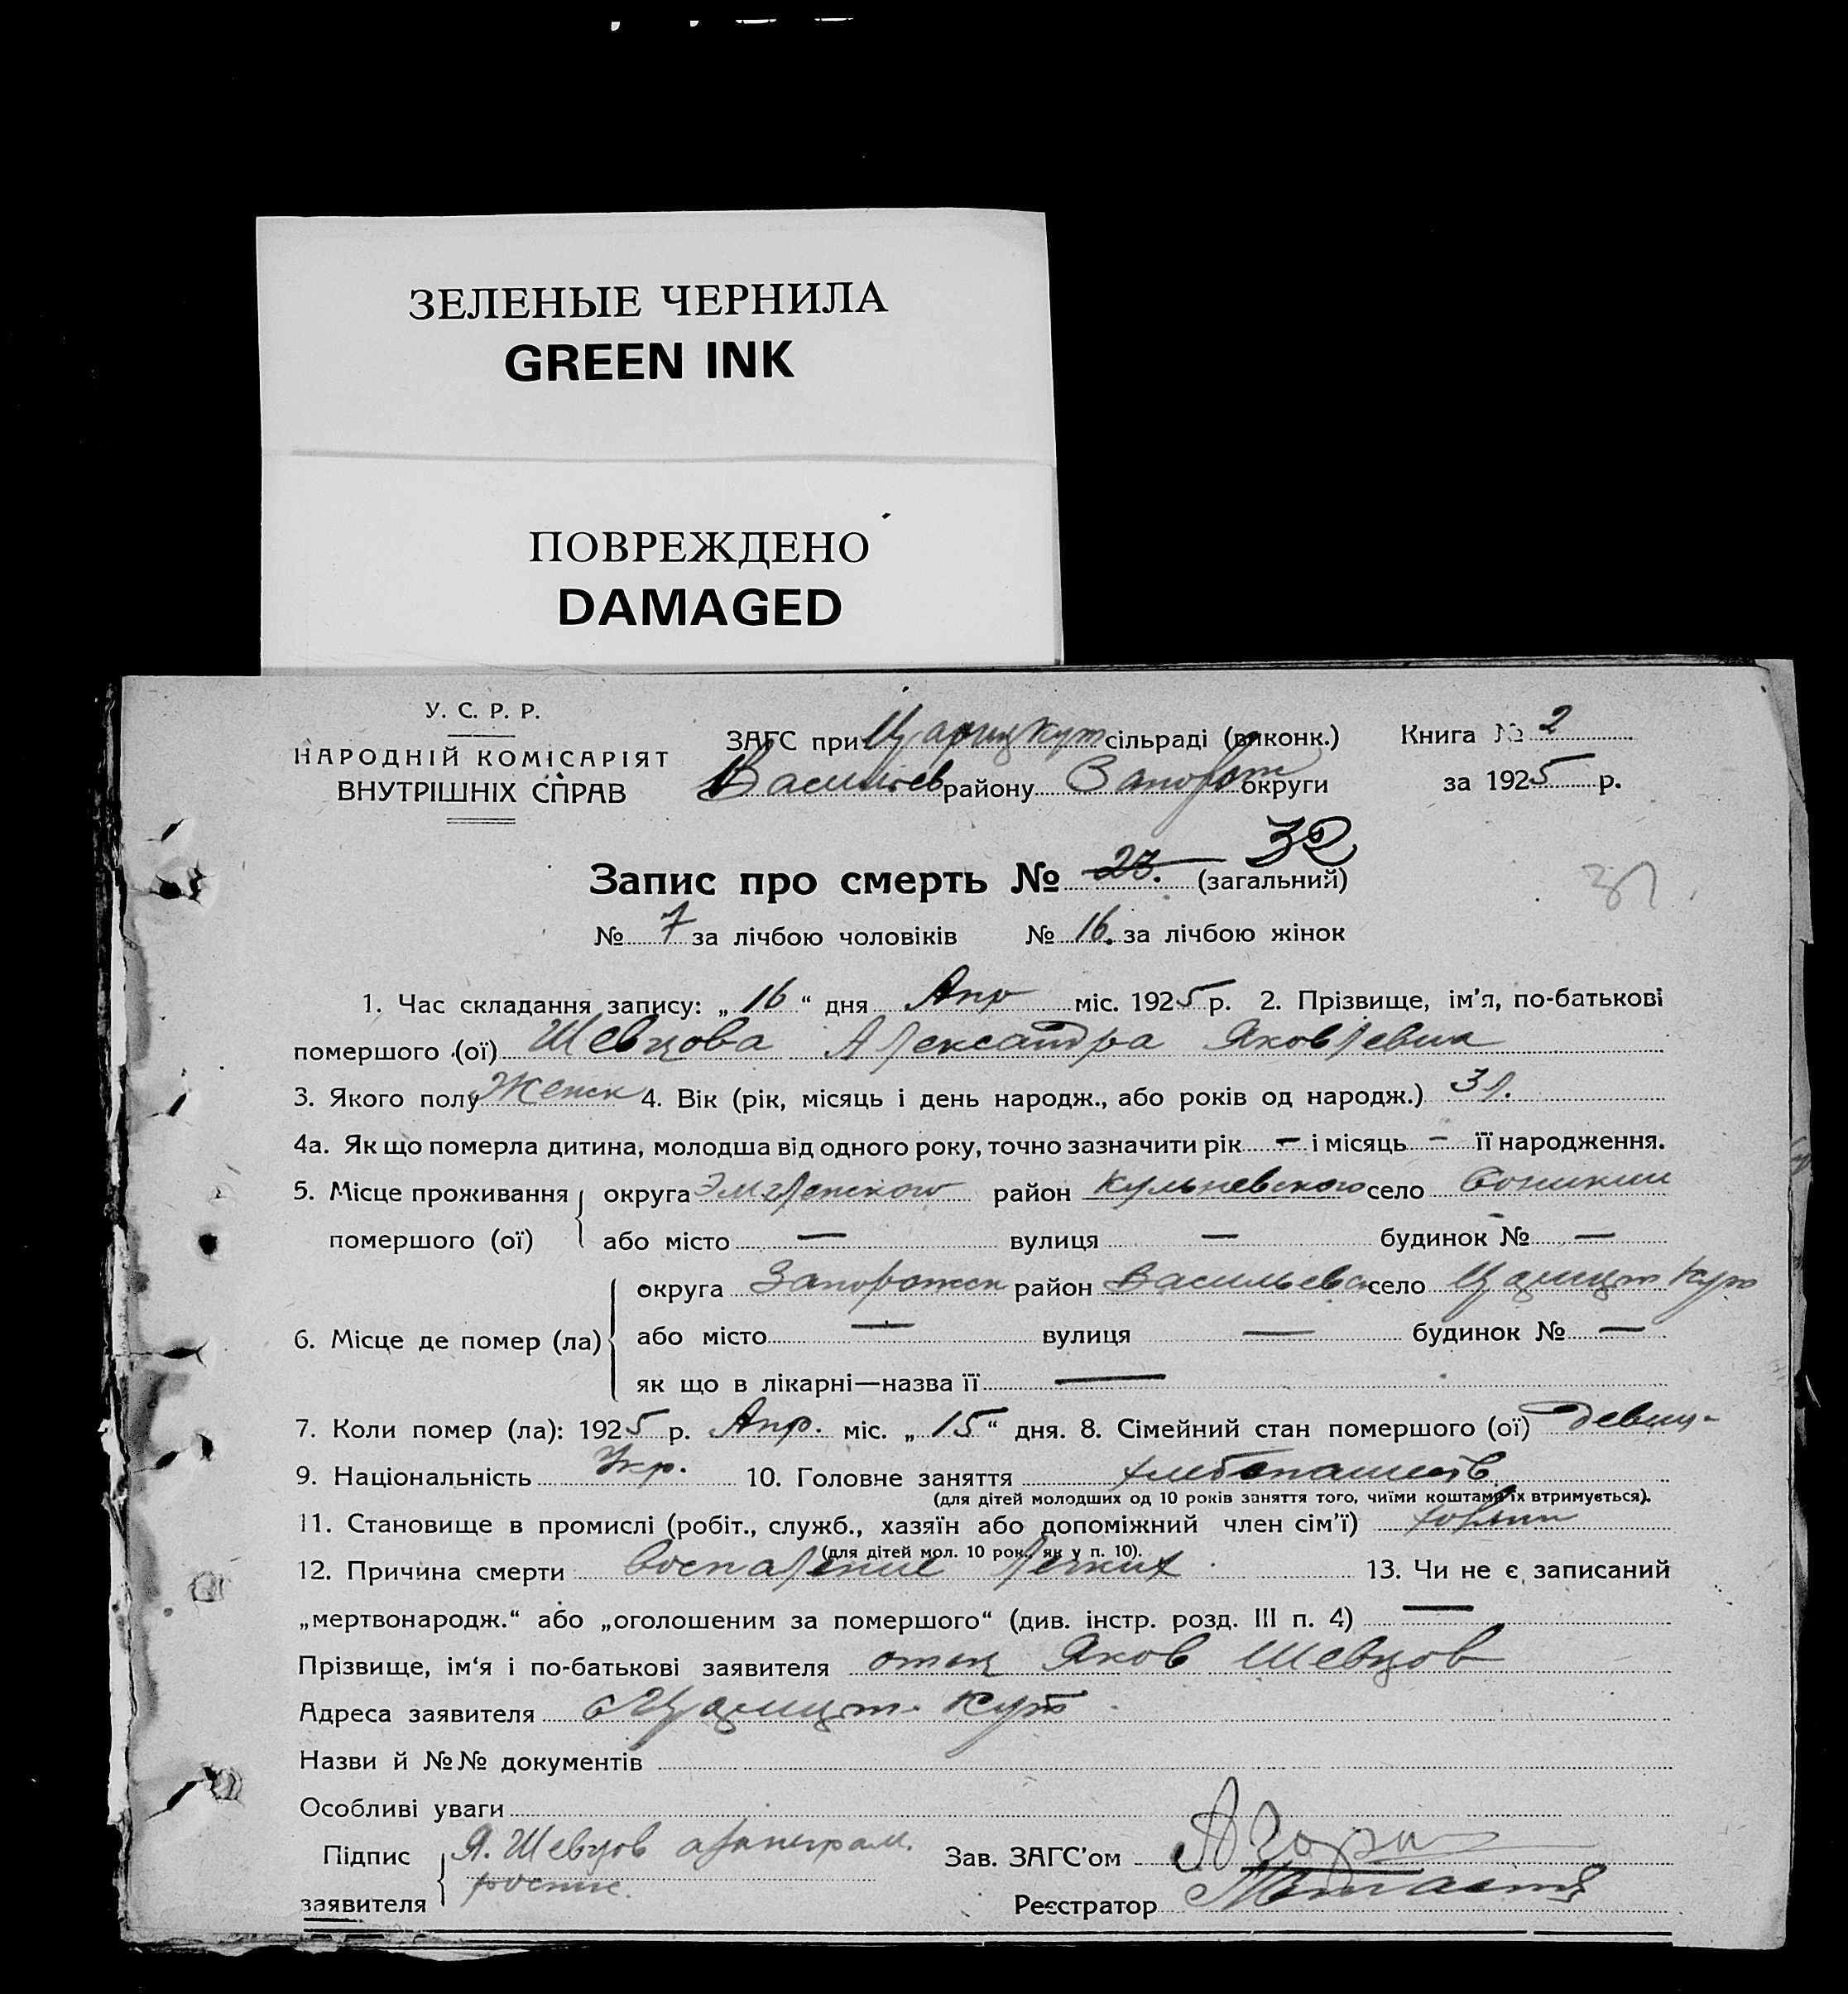 ЗЕЛЕНЫЕ ЧЕРНИЛА
GREEN INK
ПОВРЕЖДЕНО
DAMAGED
У. С. Р. Р.
НАРОДНІЙ КОМІСАРІЯТ
ВНУТРІШНІХ СПРАВ
ЗАГС при Царицкут сільраді (виконк.)
Васильев району Запорож округи
Книга № 2
за 1925 р.
Запис про смерть № 23. 32 (загальний)
32
№ 7 за лічбою чоловіків № 16. за лічбою жінок
1. Час складання запису: „16“ дня Апр міс. 1925 р. 2. Прізвище, ім’я, по-батькові
помершого (ої) Шевцова Александра Яковлевна
3. Якого полу Женск 4. Вік (рік, місяць і день народж., або років од народж.) 3 л.
4а. Як що померла дитина, молодша від одного року, точно зазначити рік — і місяць — її народження.
5. Місце проживання округа район село
помершого (ої) або місто — вулиця — будинок № —
6. Місце де помер (ла)
округа Запорожск район Васильевс село Царицт Кут
або місто — вулиця — будинок № —
як що в лікарні—назва її —
7. Коли помер (ла): 1925 р. Апр. міс. „15“ дня. 8. Сімейний стан помершого (ої) девиц-
9. Національність Укр. 10. Головне заняття хлебопашеств.
(для дітей молодших од 10 років заняття того, чиїми коштами їх втримується).
11. Становище в промислі (робіт., служб., хазяїн або допоміжний член сім’ї)
(для дітей мол. 10 рок., як у п. 10).
12. Причина смерти воспаление легких 13. Чи не є записаний
„мертвонародж.“ або „оголошеним за помершого“ (див. інстр. розд. III п. 4) —
Прізвище, ім‘я і по-батькові заявителя отец Яков Шевцов
Адреса заявителя с Царицт. Кут
Назви й №№ документів
Особливі уваги
Підпис заявителя Я. Шевцов
Зав. ЗАГС’ом
Реєстратор